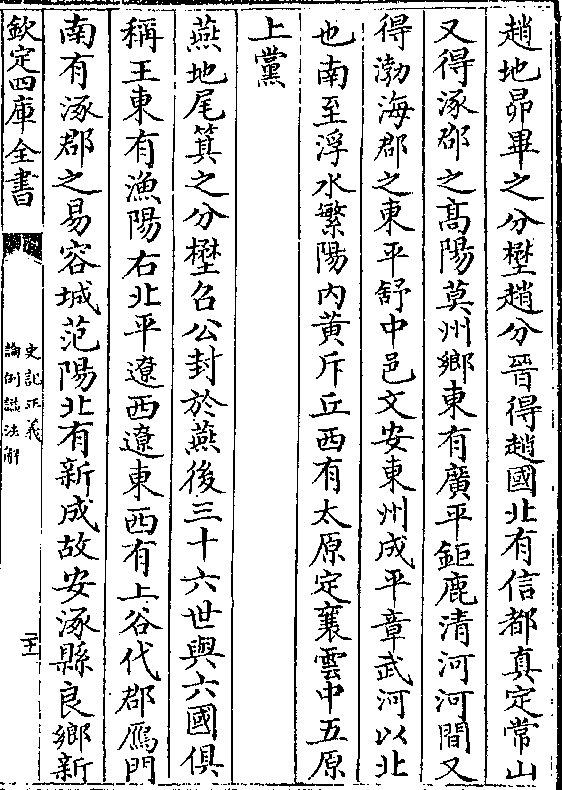 趙地昴畢之分壄趙分晉得趙國北有信都真定常山
又得涿郡之髙陽莫州鄉東有廣平鉅鹿清河河間又
得渤海郡之東平舒中邑文安東州成平章武河以北
也南至浮水繁陽内黄斥丘西有太原定襄雲中五原
上黨
燕地尾箕之分壄召公封於燕後三十六世與六國俱
稱王東有漁陽右北平遼西遼東西有上谷代郡鴈門
南有涿郡之易容城范陽北有新成故安涿縣良鄉新
欽定四庫全書
史記正義
論例諡法解
二十二